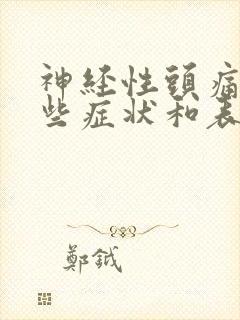 神经性頭痛
些症状和表
鄭鉞